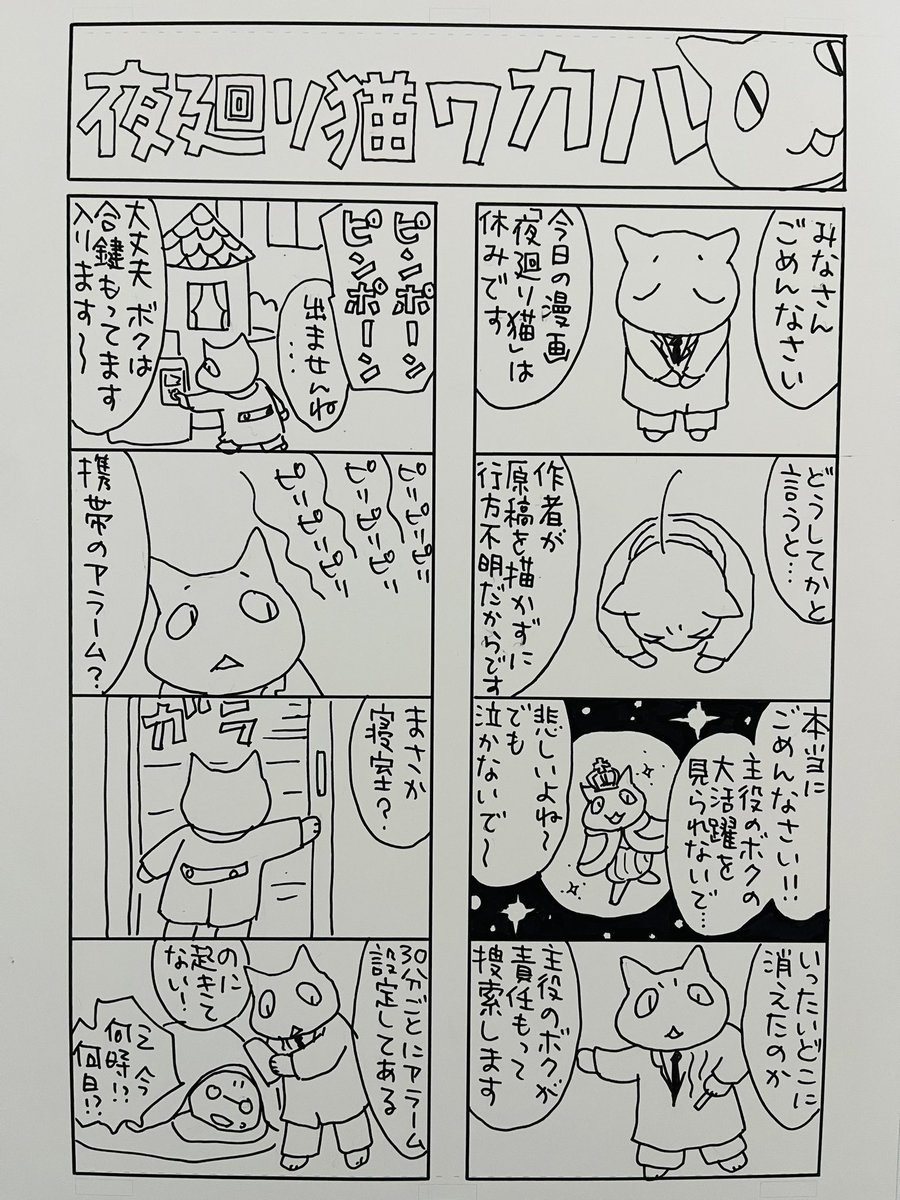 夜廻り猫ワカル
みなさん
ごめんなさい
今日の漫画
「夜廻り猫」は
休みです
どうしてかと
言うと…
作者が
原稿を描かずに
行方不明だからです
本当に
ごめんなさい!!
主役のボクの
大活躍を
見られないで…
悲しいよね〜
でも
泣かないで〜
いったいどこに
消えたのか
主役のボクが
責任もって
捜索します
ピンポーン
ピンポーン
出ませんね
…
大丈夫 ボクは
合鍵もってます
入ります〜
ピピピピッ
ピピピピッ
ピピピピッ
携帯のアラーム?
まさか
寝室?
ガラ
30分ごとにアラーム
設定してある
のに
起きて
ない!
え 今
何時!?
何日!?